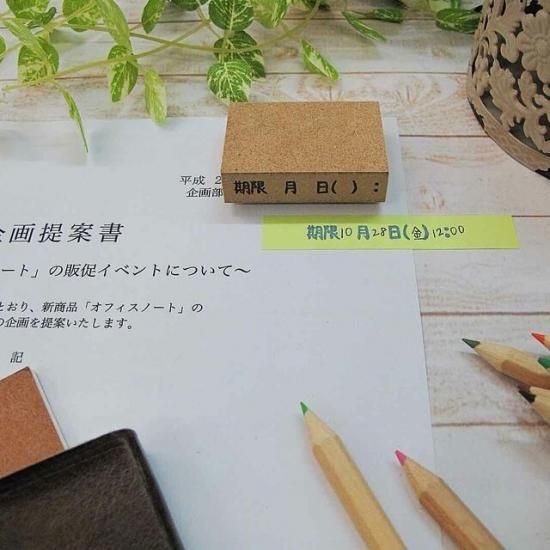 平成 2
企画部
期限 月 日( ) :
期限10月28日(金)12:00
企画提案書
ート」の販促イベントについて～
とおり、新商品「オフィスノート」の
の企画を提案いたします。
記